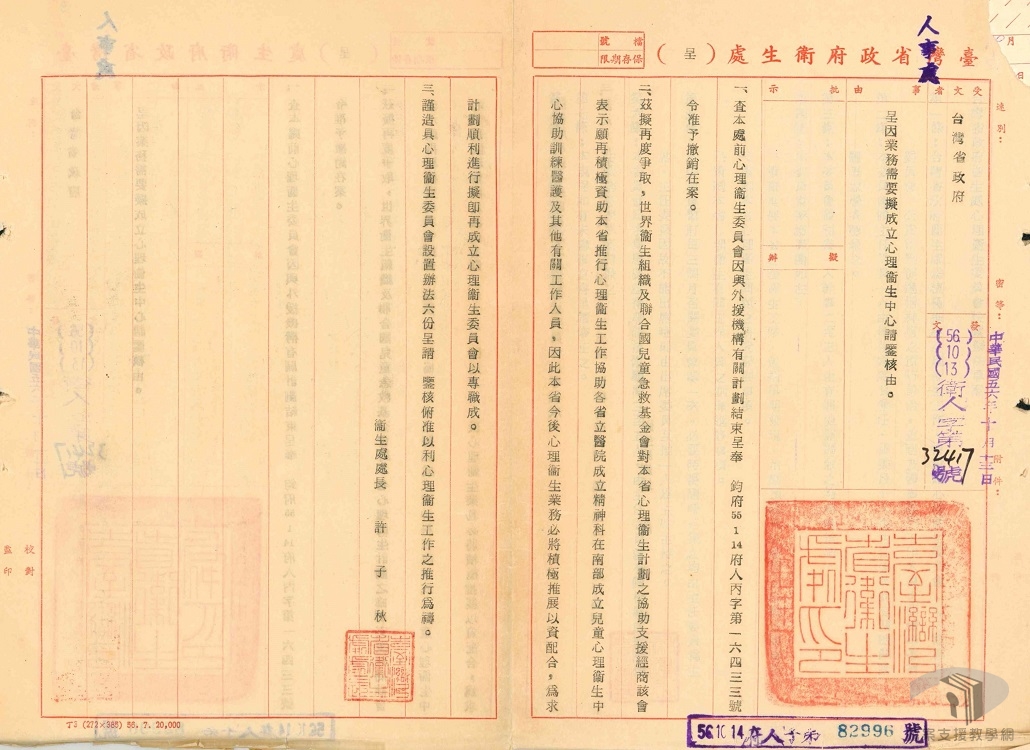 人事處
臺灣省政府衛生處（呈）
檔號
保存期限
速別：
密等：
附件：
受文者
台灣省政府
發文
中華民國五六年十月十三日
(56)(10)(13)衛人字第32417號
事由
呈因業務需要擬成立心理衛生中心請鑒核由。
批示
擬辦
一、查本處前心理衛生委員會因與外援機構有關計劃結束呈奉　鈞府55 1 14府人丙字第一六四三三號
令准予撤銷在案。
二、茲擬再度爭取，世界衛生組織及聯合國兒童急救基金會對本省心理衛生計劃之協助支援經商該會
表示願再積極資助本省推行心理衛生工作協助各省立醫院成立精神科在南部成立兒童心理衛生中
心協助訓練醫護及其他有關工作人員，因此本省今後心理衛生業務必將積極推展以資配合，爲求
計劃順利進行擬卽再成立心理衛生委員會以專職成。
三、謹造具心理衛生委員會設置辦法六份呈請　鑒核俯准以利心理衛生工作之推行爲禱。
衛生處處長　許子秋
臺灣省衛生處印
校對
監印
T3 (272×385) 56. 7. 20,000
56 10 14 府人字第 82996 號
支援教學網